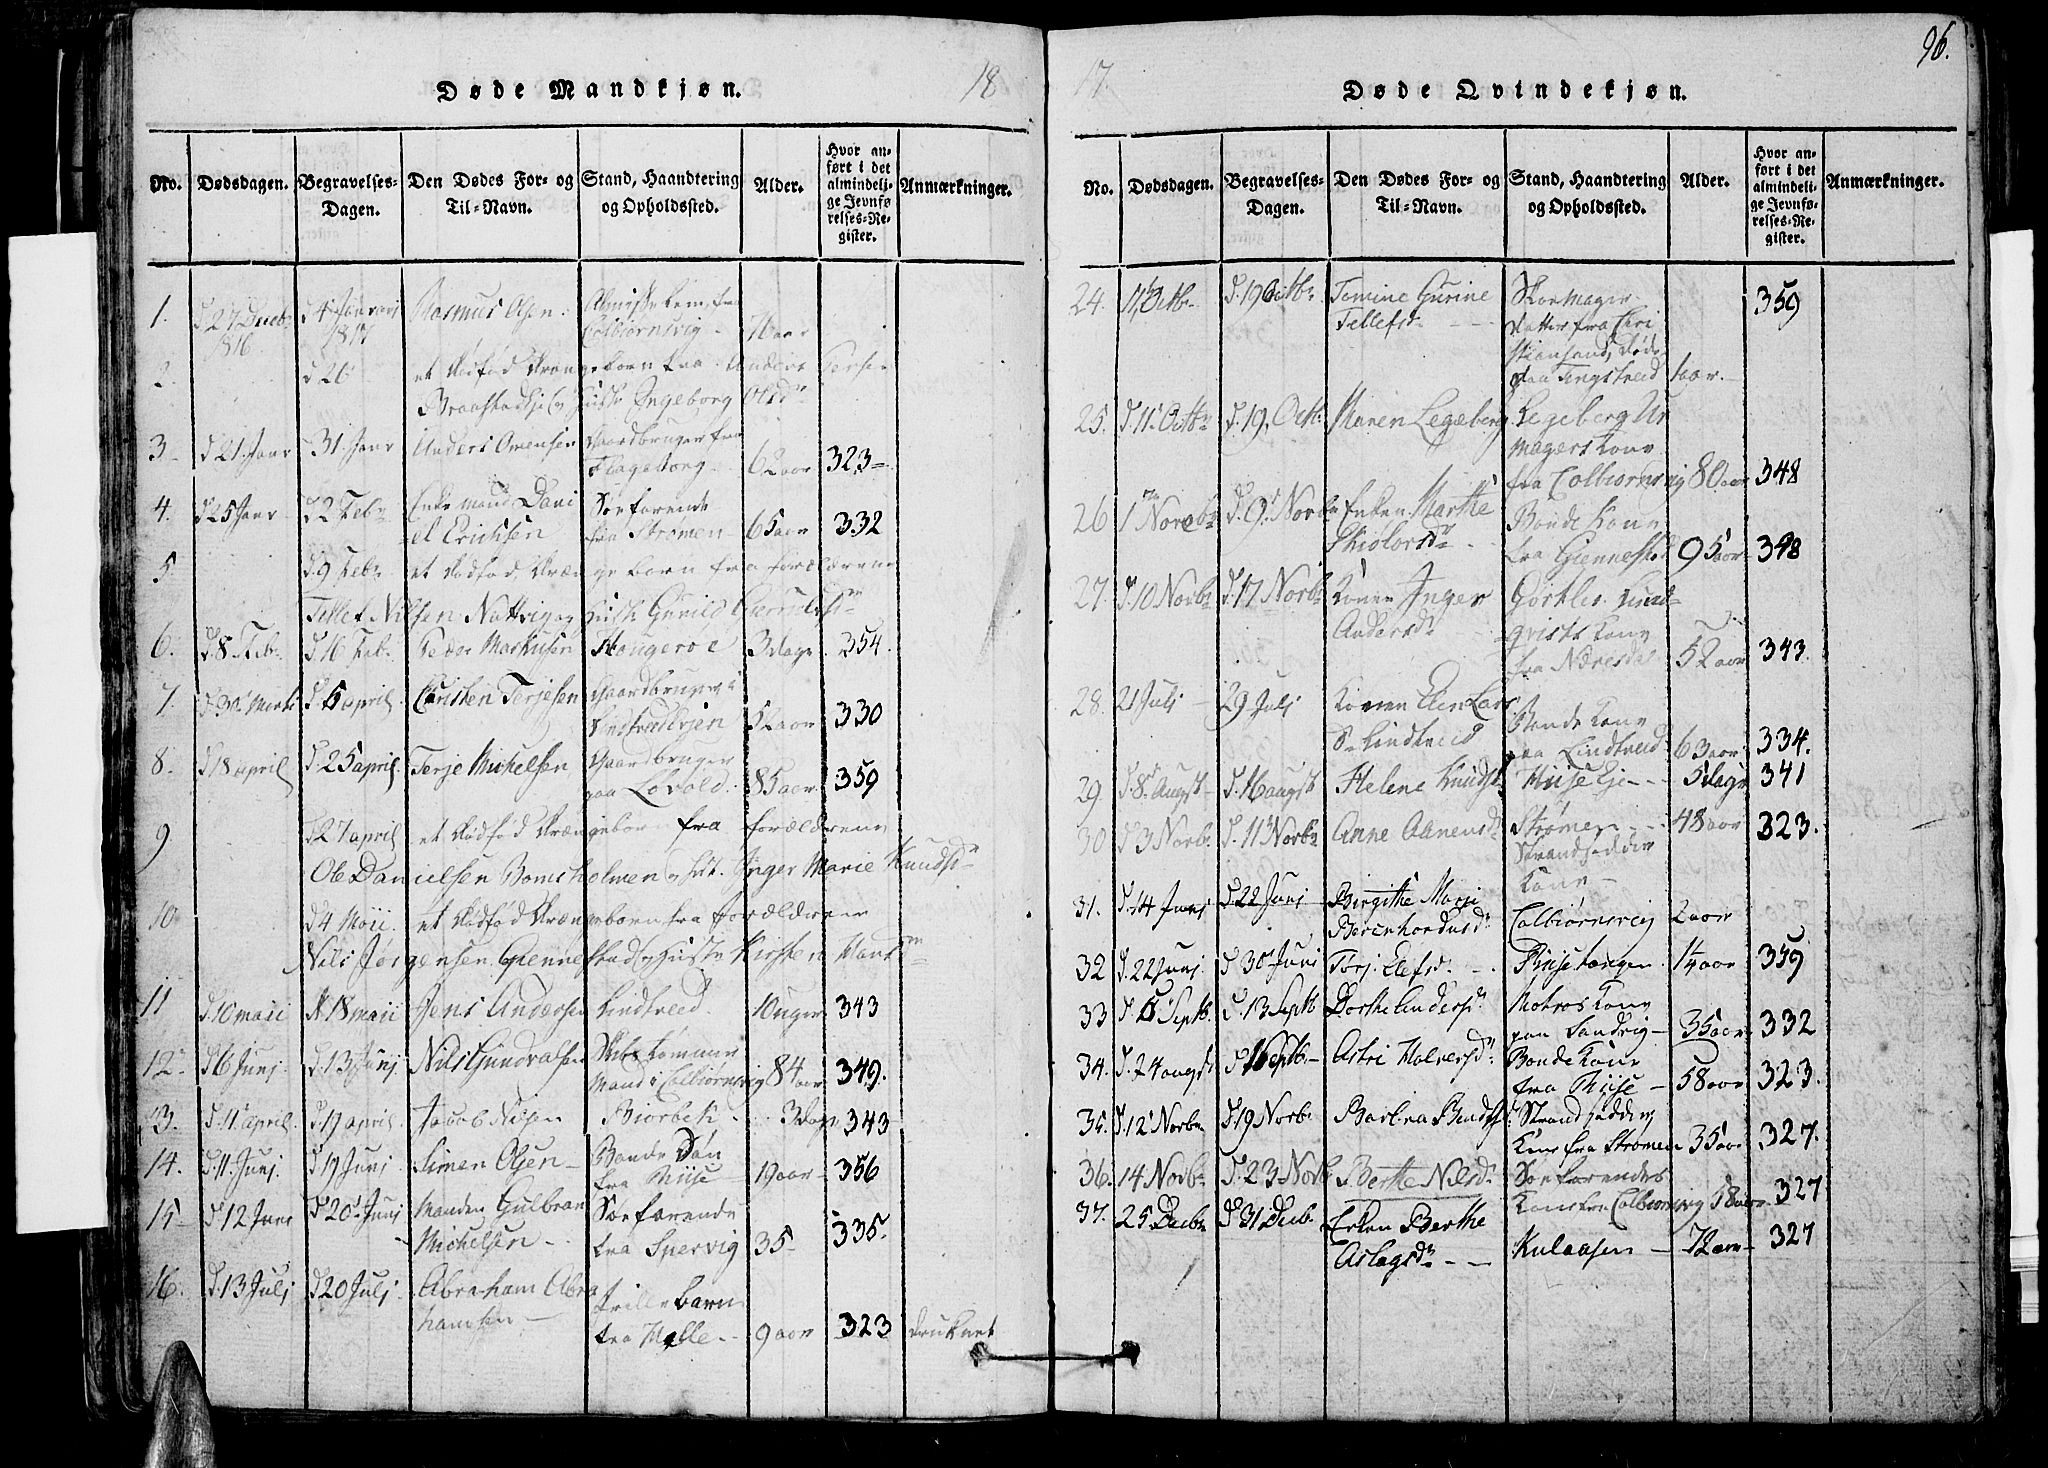 Døde Mandkjøn.
18
No.
Dødsdagen.
Begravelses-
Dagen.
Den Dødes For- og
Til-Navn.
Stand, Haandtering
og Opholdssted.
Alder.
Hvor an-
ført i det
almindeli-
ge Jevnfø
relses-Re-
gister.
Anmærkninger.
1. d 27 Decbr 1816 d 4 Januari 1817 Rasmus Olsen
Colbiørnsvig 76 aar
2. d 26 et dødfød Drengebarn fra Anders Terje
Ingeborg Olsdr
3 d 21. Janr 31. Janr Anders Omensen Gaardbruger fra
Flageborg 62 aar 323
4. d 25 Janr d 2 Febr Enkemand Dani
el Ericksen Søefarende
fra Strømen 65 aar 332
5 d. 9 Febr et dødfød Drengebarn fra forældrene
Tellef Nilsen Nattvig og Gunild
6. d. 8 Feb. d. 16 Feb. Peder Markusen Haugerøe 3 dage 354
7. d. 30 Marti d. 6 april Carsten Terjesen Gaardbruger
52 aar 330
8. d 18 april d. 25 april Terje Michelsen Gaardbruger
paa Løvold 85 aar 359
9 d 27 april et dødfød Drengebarn fra forældrene
Ole Danielsen Bomsholmen Inger Marie Knudsdr
10 d 4 Maii. et dødfød Drengebarn fra forældrene
Nils Jørgensen Gennestad Kirsten
11 d. 10 maii d 18 maii Jens Andersen Lindtveid 10 uger 343
12 d 6 Junj. d. 13 Junj Nils Gundvalsen
Mand i Colbiørnsvig 84 aar 349.
13. d. 11 april. d. 19 april Jacob Nilsen Biorbek 3 dage 343
14. d. 11. Junj d. 19 Junj Simen Olsen Bonde Søn
fra Hiise 19 aar 356
15 d. 12 Juni d 20 Juni Manden Gulbran
Michelsen Søefarende
fra Spervig 35 335
16. d. 13 Julj d 20 Julj Abraham Abra
hamsen Lille barn
fra 9 aar 323 druknet
96.
17.
Døde Qvindekjøn.
No.
Dødsdagen.
Begravelses-
Dagen.
Den Dødes For- og
Til-Navn.
Stand, Haandtering
og Opholdssted.
Alder.
Hvor an-
ført i det
almindeli-
ge Jevnfø-
relses-Re-
gister.
Anmærkninger.
24. 11 Octb. d. 19 Octbr Tomine Gurine
Tellefsdr Skoemager
datter fra Cri
stiansand, døde
paa Tengstveid 1 aar. 359
25. d. 11 Octbr d. 19. Oct. Maren Legeberg Legeberg Ur
magers Kone
fra Colbiørnsvig 80 aar 348
26 1 Novbr d. 9. Novbr Enken Marthe
Bonde Kone
fra Giennestad 95 aar 398
27. d. 10 Novbr d. 17 Novbr Konen Inger
Andersdr Gørtler
Kone
fra Næresdal 52 aar 343
28. 21 Julj 29 Julj Konen Elen Lars
Lindtveid Bonde Kone
paa Lindtveid 63 aar 334.
29. d. 8. Augst d. 16 augst Helene Knudsdr Hiise Eje 5 dage 341
30 d 3 Novbr d. 11 Novbr Anne Aanensdr Strømen 48 aar 323.
Strandsidder
Kone
31. d. 14 Junj d 22 Junj Birgithe Marie
Berenhardusdr Colbiørnsvig 2 aar
32 d. 22 Junj d 30 Junj Torj. Elefsdr Hiisetangen. 1¼ aar 359
33 d. 6 Septb. d. 13 Septb Dorthe Andersdr Matros Kone
paa Sandvig 35 aar 332
34. d. 24 augst d 1 Septb Astri Halversdr Bonde Kone
fra Hiise 58 aar 323.
35. d. 12 Novbr d. 19 Novbr Barbra Bendsdr Strandsidder
Kone fra Strømen 35 aar 327.
36. 14 Novbr d. 23 Novb Berthe Nilsdr Søefarendes
Kone fra Colbiørnsvig 58 aar 327
37. 25 Decbr d 31 Decb. Enken Berthe
Aslagsdr Kulaasen 72 aar 327